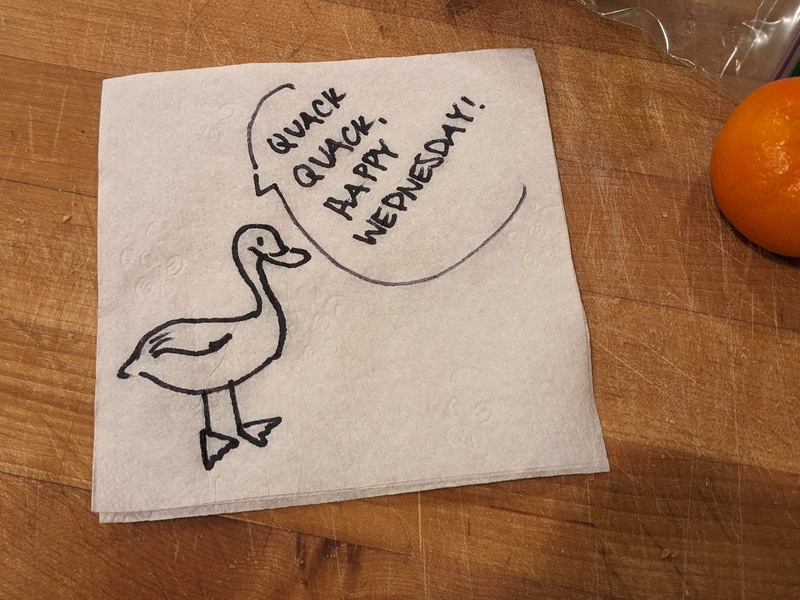 QUACK
QUACK,
HAPPY
WEDNESDAY!